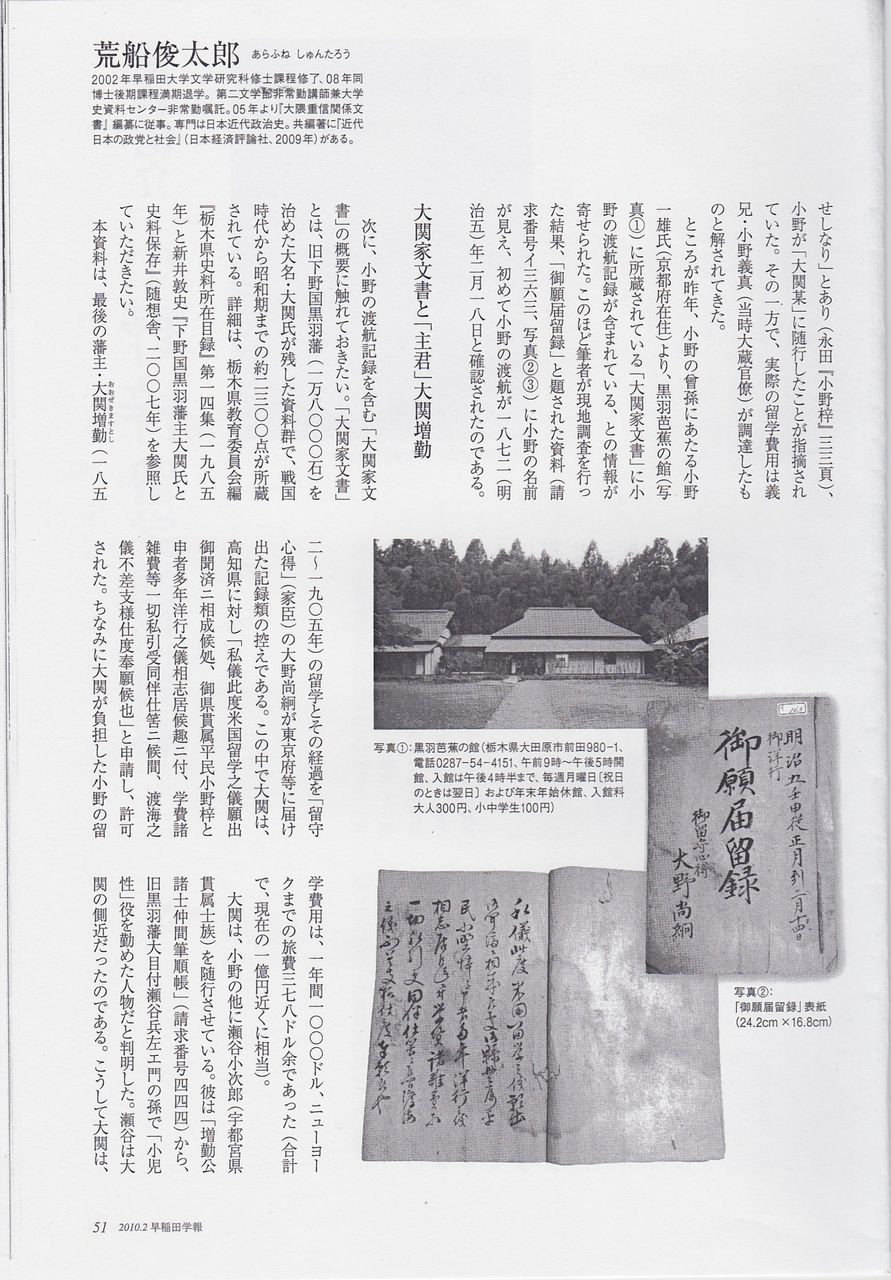 荒船俊太郎 あらふね しゅんたろう
2002年早稲田大学文学研究科修士課程修了、08年同
博士後期課程満期退学。第二文学部非常勤講師兼大学
史資料センター非常勤嘱託。05年より『大隈重信関係文
書』編纂に従事。専門は日本近代政治史。共編著に『近代
日本の政党と社会』（日本経済評論社、2009年）がある。
せしなり」とあり（永田『小野梓』三三頁）、
小野が「大関某」に随行したことが指摘され
ていた。その一方で、実際の留学費用は義
兄・小野義真（当時大蔵官僚）が調達したも
のと解されてきた。
ところが昨年、小野の曾孫にあたる小野
一雄氏（京都府在住）より、黒羽芭蕉の館（写
真①）に所蔵されている「大関家文書」に小
野の渡航記録が含まれている、との情報が
寄せられた。このほど筆者が現地調査を行っ
た結果、「御願届留録」と題された資料（請
求番号イ三六三、写真②③）に小野の名前
が見え、初めて小野の渡航が一八七二（明
治五）年二月一八日と確認されたのである。
大関家文書と「主君」大関増勤
次に、小野の渡航記録を含む「大関家文
書」の概要に触れておきたい。「大関家文書」
とは、旧下野国黒羽藩（一万八〇〇〇石）を
治めた大名・大関氏が残した資料群で、戦国
時代から昭和期までの約二三〇〇点が所蔵
されている。詳細は、栃木県教育委員会編
『栃木県史料所在目録』第一四集（一九八五
年）と新井敦史『下野国黒羽藩主大関氏と
史料保存』（随想舎、二〇〇七年）を参照し
ていただきたい。
本資料は、最後の藩主・大関増勤（一八五
おおぜきますとし
二〜一九〇五年）の留学とその経過を「留守
心得」（家臣）の大野尚絅が東京府等に届け
出た記録類の控えである。この中で大関は、
高知県に対し「私儀此度米国留学之儀願出
御聞済ニ相成候処、御県貫属平民小野梓と
申者多年洋行之儀相志居候趣ニ付、学費諸
雑費等一切私引受同伴仕筈ニ候間、渡海之
儀不差支様仕度奉願候也」と申請し、許可
された。ちなみに大関が負担した小野の留
学費用は、一年間一〇〇〇ドル、ニューヨー
クまでの旅費三七八ドル余であった（合計
で、現在の一億円近くに相当）。
大関は、小野の他に瀬谷小次郎（宇都宮県
貫属士族）を随行させている。彼は「増勤公
諸士仲間筆順帳」（請求番号四四四）から、
旧黒羽藩大目付瀬谷兵左エ門の孫で「小児
性」役を勤めた人物だと判明した。瀬谷は大
関の側近だったのである。こうして大関は、
写真①：黒羽芭蕉の館（栃木県大田原市前田980-1、
電話0287-54-4151、午前9時〜午後5時開
館、入館は午後4時半まで、毎週月曜日〔祝日
のときは翌日〕および年末年始休館、入館料
大人300円、小中学生100円）
明治五壬申従正月到二月十四日
御洋行
御願届留録
御留守心得
大野尚絅
写真②：
「御願届留録」表紙
（24.2cm×16.8cm）
私儀此度米国留学之儀願出
51 2010.2 早稲田学報